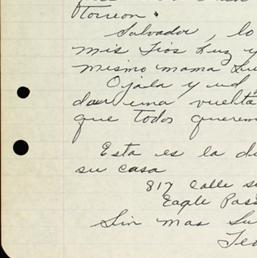 Torreon.
Salvador, lo
mis Tios Luz y
mismo mama Lu
Ojala y ud
dar una vuelta
que todos querem
Esta es la di
su casa
817 Calle s
Eagle Pass
Sin mas Su